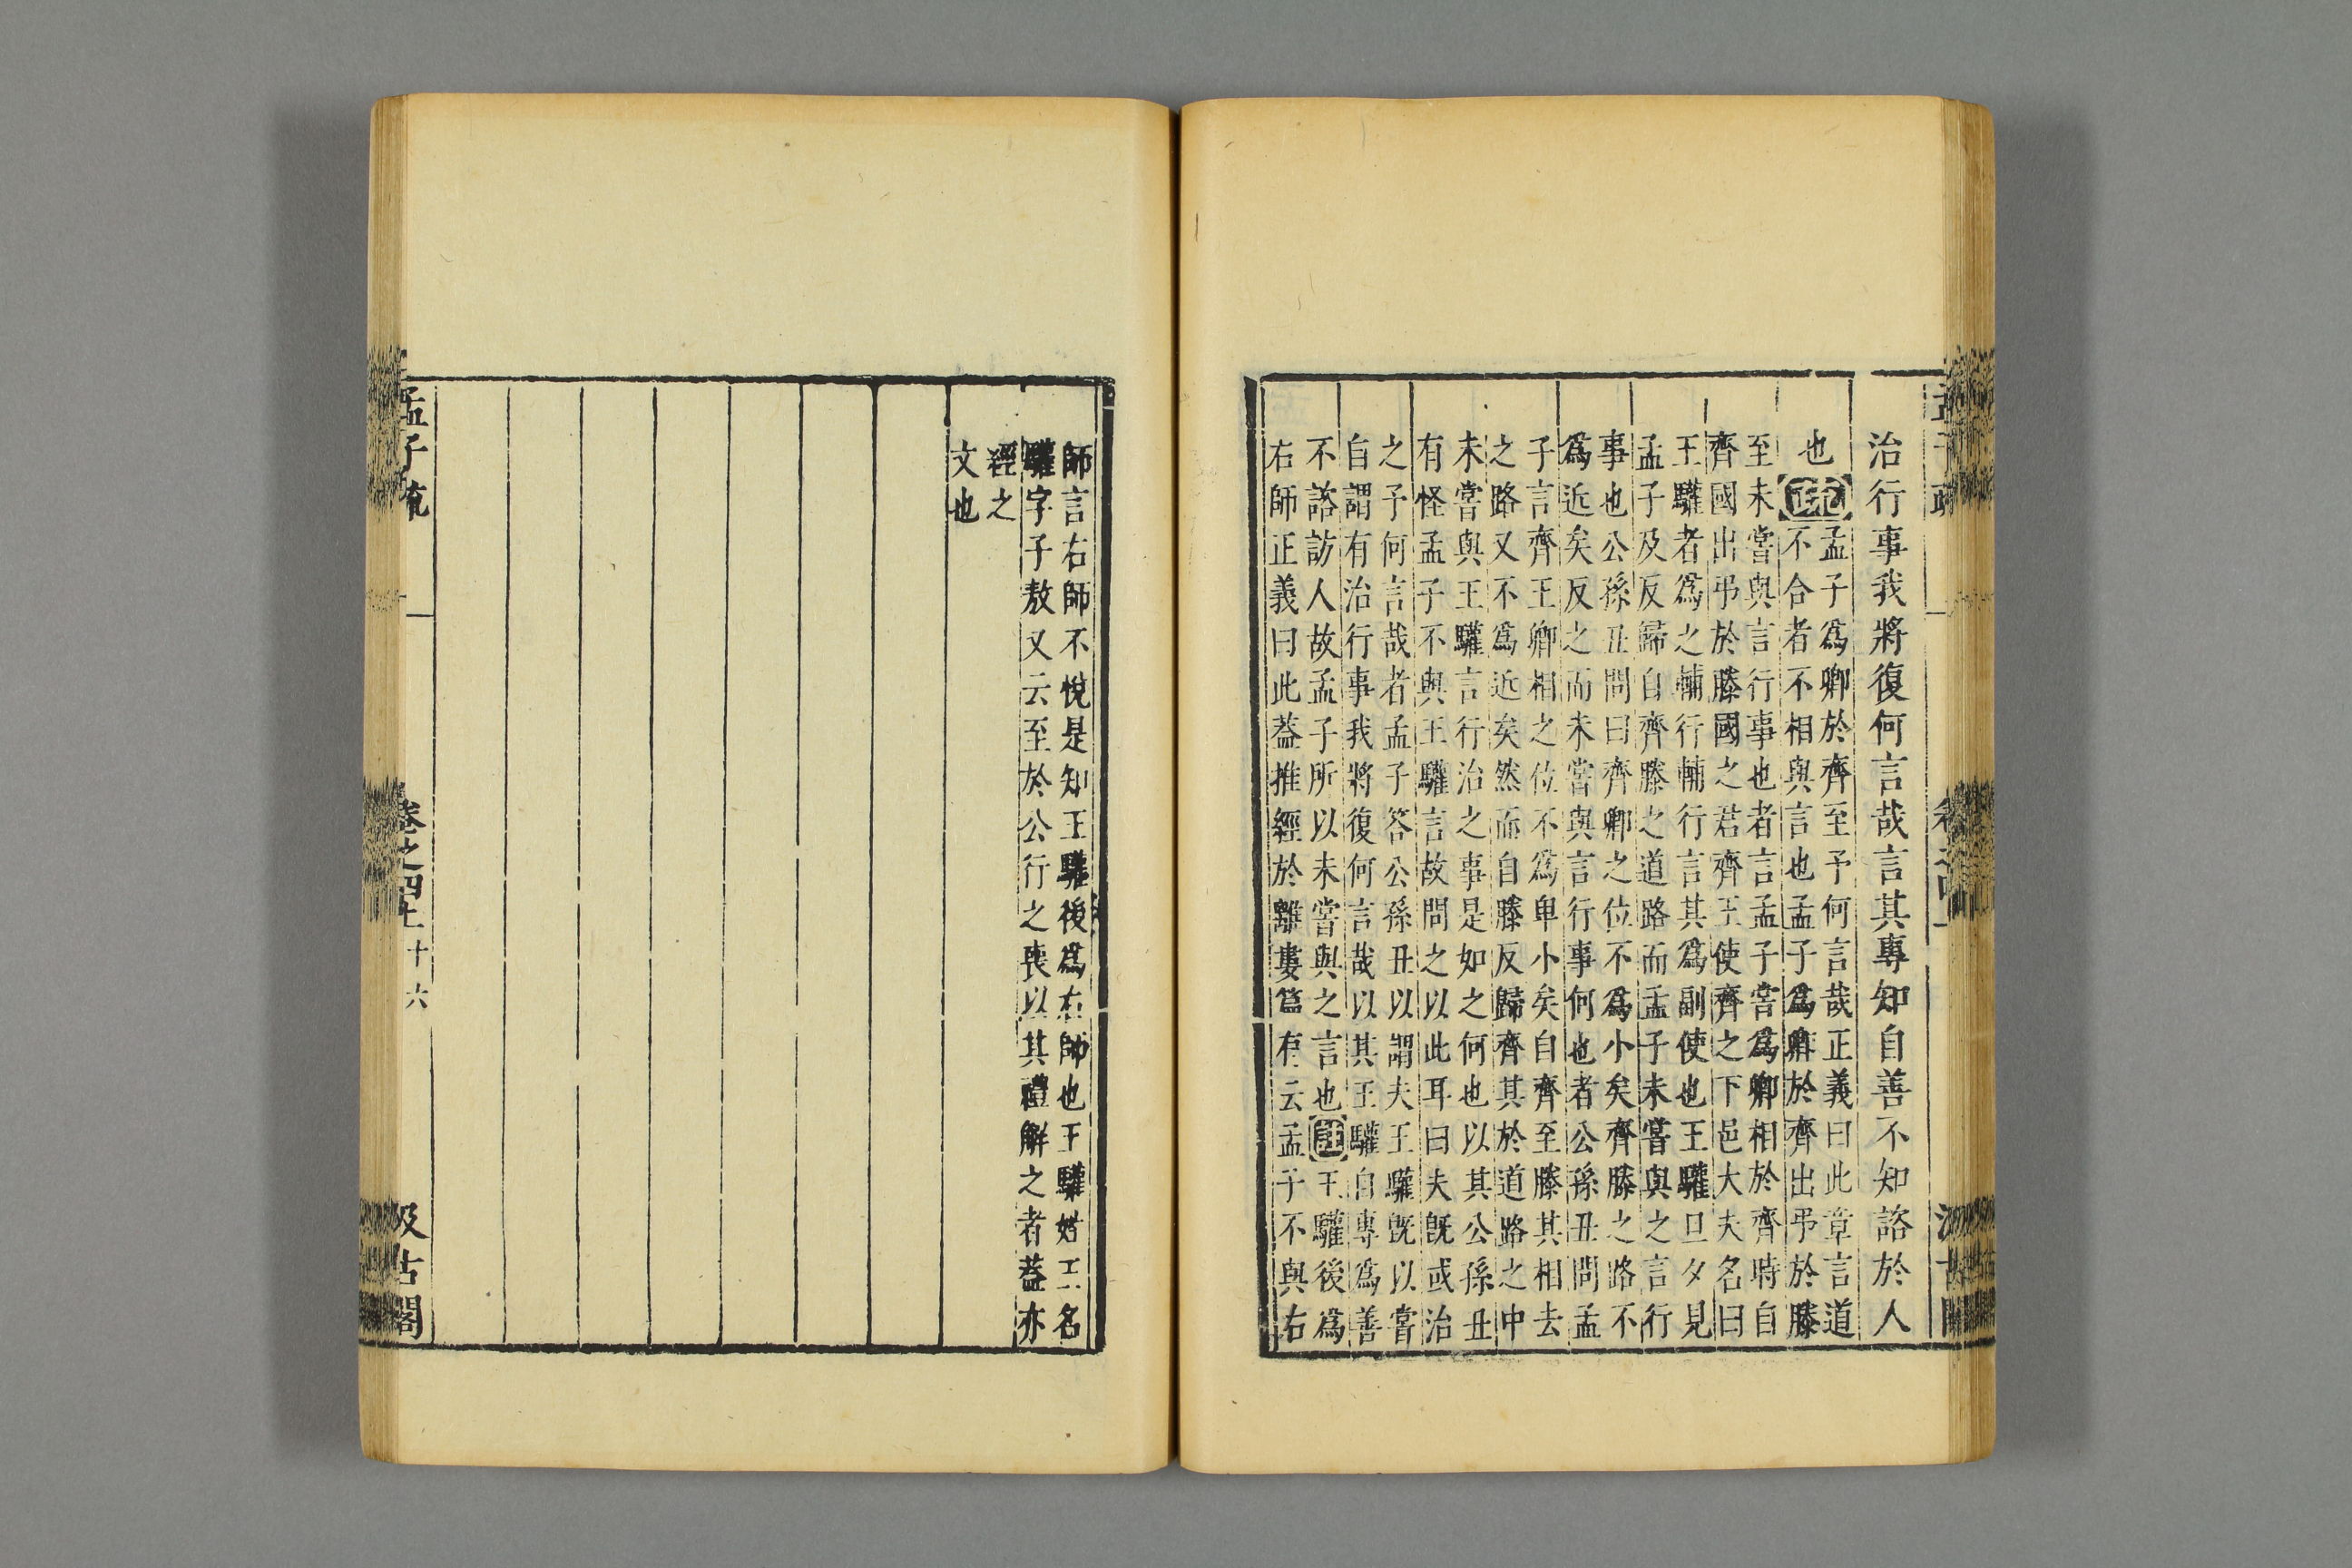 治行事我將復何言哉言其專知自善不知諮於人
也疏
孟子爲卿於齊至予何言哉正義曰此章言道
不合者不相與言也孟子爲卿於齊出弔於滕
至未嘗與言行事也者言孟子嘗爲卿相於齊時自
齊國出弔於滕國之君齊王使齊之下邑大夫名曰
王驩者爲之輔行輔行言其爲副使也王驩旦夕見
孟子及反歸自齊滕之道路而孟子未嘗與之言行
事也公孫丑問曰齊卿之位不爲小矣齊滕之路不
爲近矣反之而未嘗與言行事何也者公孫丑問孟
子言齊王卿相之位不爲卑小矣自齊至滕其相去
之路又不爲近矣然而自滕反歸齊其於道路之中
未嘗與王驩言行治之事是如之何也以其公孫丑
有怪孟子不與王驩言故問之以此耳曰夫旣或治
之予何言哉者孟子答公孫丑以謂夫王驩旣以嘗
自謂有治行事我將復何言哉以其王驩自專爲善
不諮訪人故孟子所以未嘗與之言也注王驩後爲
右師正義曰此葢推經於離婁篇有云孟子不與右
師言右師不悅是知王驩後爲右師也王驩姓王名
驩字子敖又云至於公行之喪以其禮解之者葢亦
經之
文也
孟子疏
卷之四上
十六
汲古閣